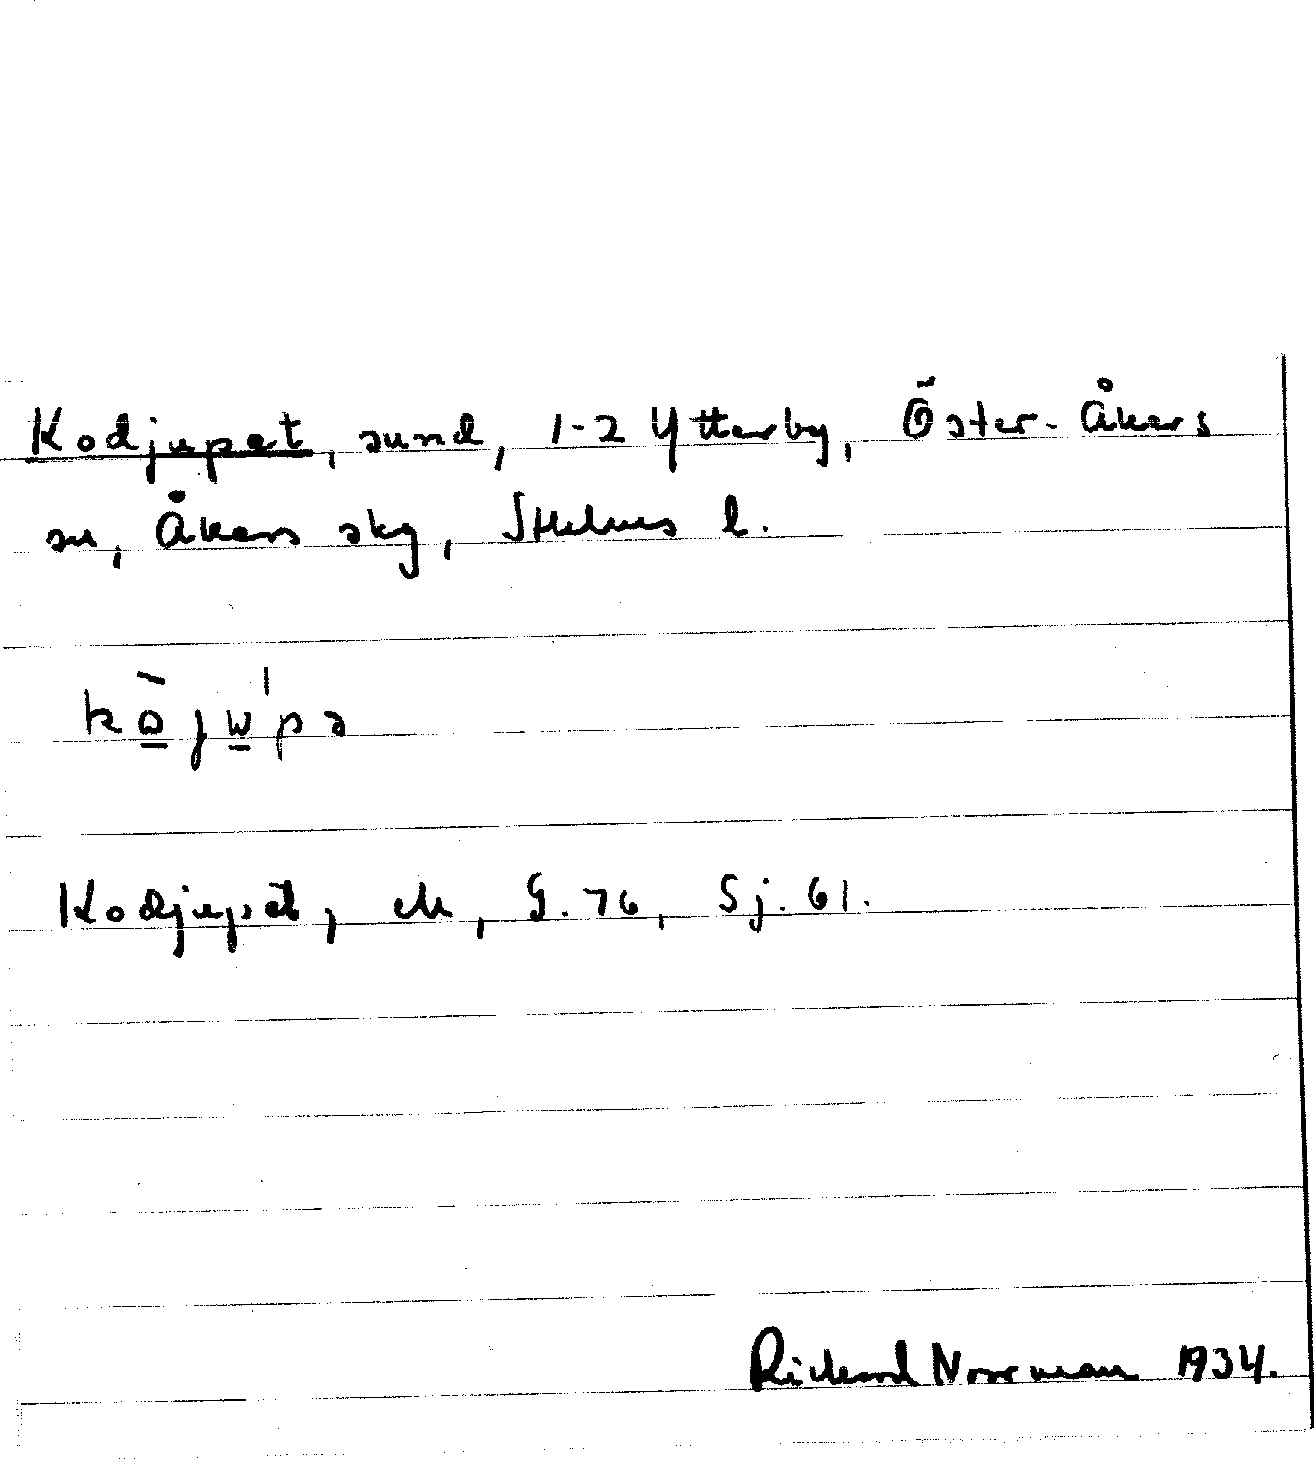 Kodjupet, sund, 1-2 Ytterby, Öster-Åkers
sn, Åkers skg, Sthlms l.
Kodjupet, ek, G. 76, Sj. 61.
Rickard Norrman 1934.